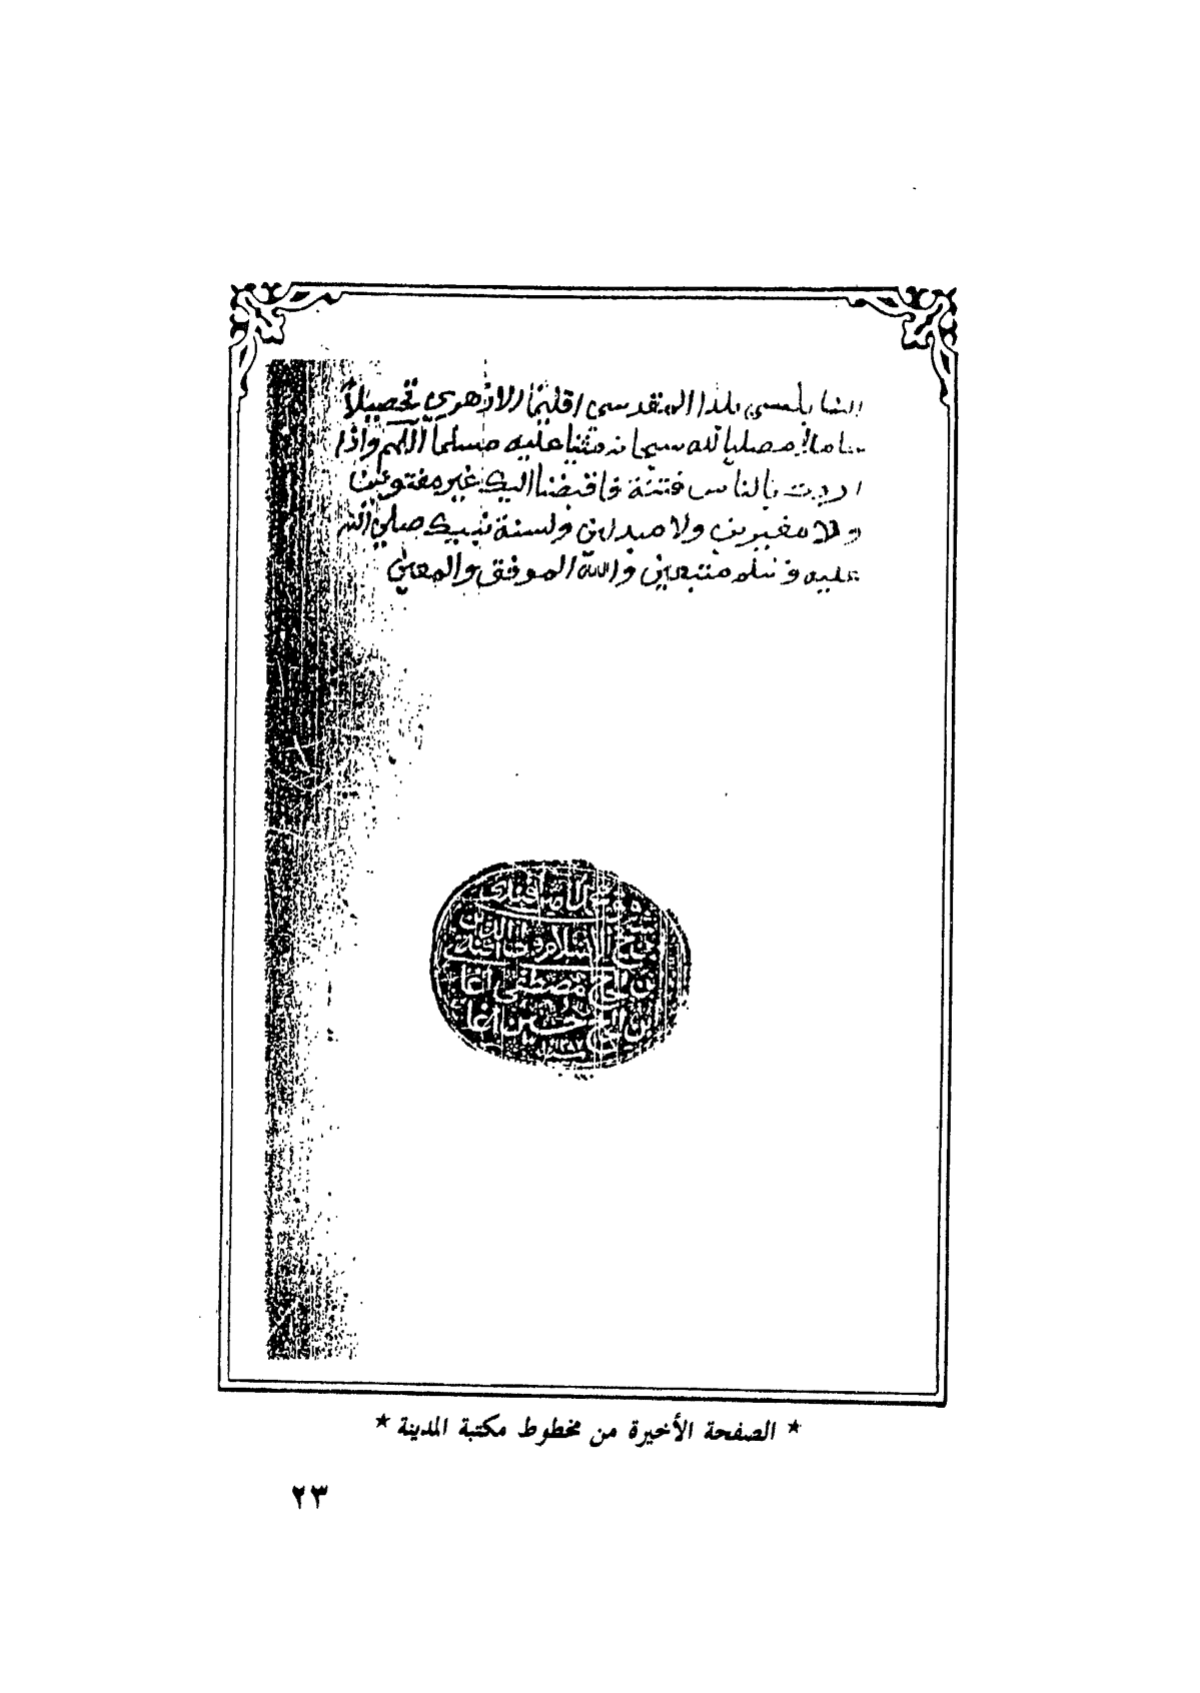 النابلسي بلدا المقدسي اقليما الازهري تحصيلا
مصليا لله سبحانه مثنيا عليه مسلما اللهم واذا
اردت بالناس فتنة فاقبضنا اليك غير مفتونين
ولا مغيرين ولا مبدلين ولسنة نبيك صلى الله
عليه وسلم متبعين والله الموفق والمعين
الحاج مصطفى اغا
بن الحاج حسين اغا
* الصفحة الأخيرة من مخطوط مكتبة المدينة *
٢٣